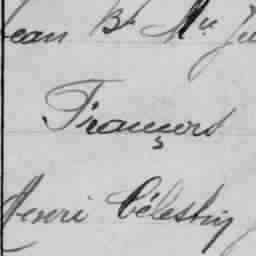 Jean Bte
François
Henri Célestin